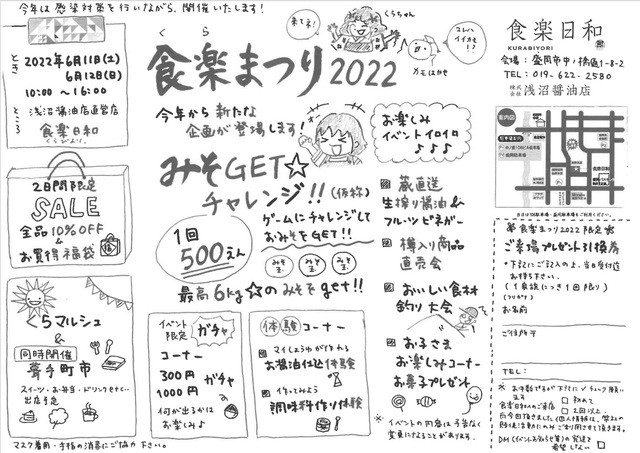 今年は感染対策を行いながら、開催いたします!
とき
2022年6月11日(土)
6月12日(日)
10:00 〜 16:00
ところ
浅沼醤油店直営店
食楽日和
くらびより
2日間限定
SALE
全品10%OFF
&
お買得福袋
くらマルシェ
&
同時開催
軽食・お弁当・ドリンクをそく…
出店予定
マスク着用・手指の消毒にご協力下さい。
来てネ!
くらちゃん
スレハ
イイカモ!?
カモはかせ
くら
食楽まつり2022
今年から新たな
企画が登場します!
みそGET☆
チャレンジ!!(仮称)
1回
500えん
ゲームにチャレンジして
おみそをGET!!
みそ玉
みそ玉
みそ玉
最高6kg☆のみそをget!!
イベント限定
ガチャ
コーナー
300円
1000円
ガチャ
何が出るかは
お楽しみ♪
体験コーナー
マイしょうゆが作れる
お醤油仕込体験
作ってみよう
調味料作り体験
お楽しみ
イベントイロイロ
♪♪♪
蔵直送
生搾り醤油&
フルーツビネガー
樽入り商品
直売会
おいしい食材
釣り大会
お子さま
お楽しみコーナー
お菓子プレゼント
*イベントの内容は予告なく
変更になることがあります。
食楽日和
KURABIYORI
会場:盛岡市中ノ橋通1-8-2
TEL:019-622-2580
株式会社 浅沼醤油店
案内図
食楽まつり2022限定
ご来場プレゼント引換券
*下記にご記入の上、当日受付迄
お持ち下さい。
(1家族につき1回限り)
(フリガナ)
お名前
ご住所〒
TEL: